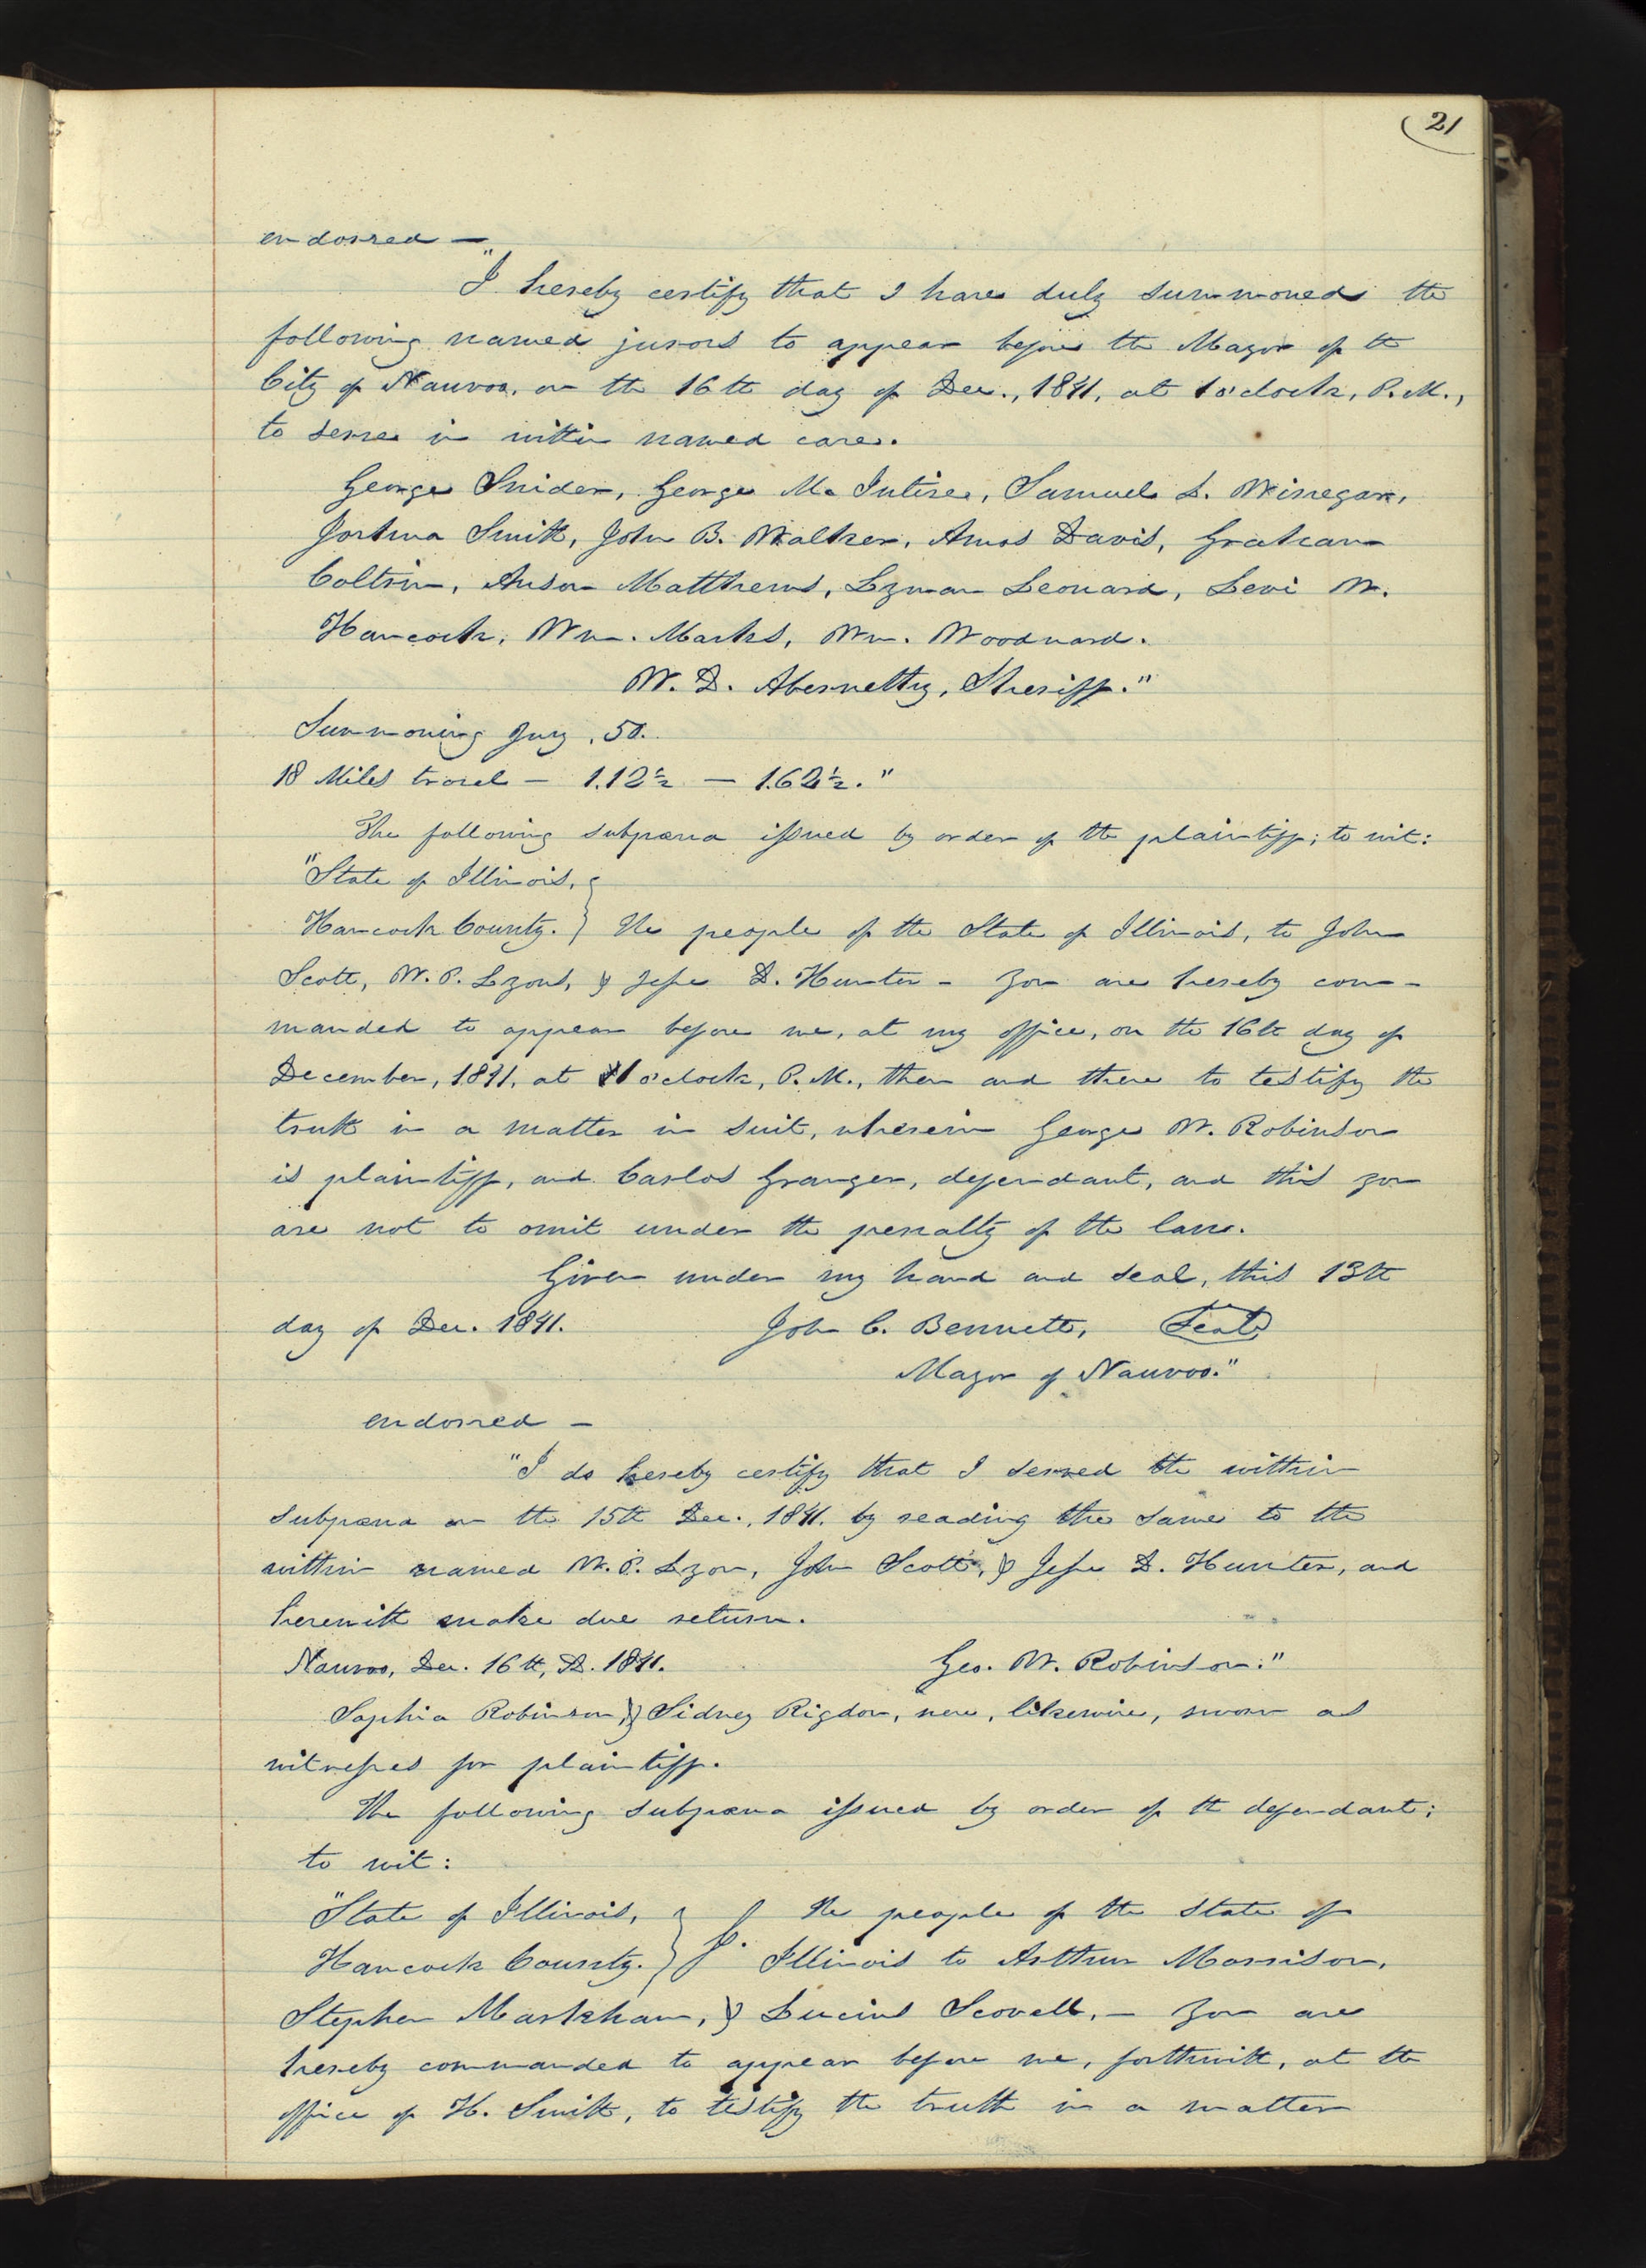 21
endorsed —
"I hereby certify that I have duly summoned the
following named jurors to appear before the Mayor of the
City of Nauvoo, on the 16th day of Dec., 1841, at 1 o'clock, P.M.,
to serve in within named case.
George Snider, George Mc Intire, Samuel L. Winegar,
Joshua Smith, John B. Walker, Amos Davis, Graham
Coltrin, Anson Matthews, Lyman Leonard, Levi W.
Hancock, Wm. Marks, Wm. Woodward.
W. D. Abernethy, Sheriff."
Summoning Jury, 50.
18 Miles travel — 1.12½ — 1.62½."
The following subpœna issued by order of the plaintiff; to wit:
"State of Illinois, }
Hancock County. } The people of the State of Illinois, to John
Scott, W. P. Lyons, & Jesse D. Hunter - You are hereby com-
manded to appear before me, at my office, on the 16th day of
December, 1841, at 1 o'clock, P.M., then and there to testify the
truth in a matter in suit, wherein George W. Robinson
is plaintiff, and Carlos Granger, defendant, and this you
are not to omit under the penalty of the law.
Given under my hand and seal, this 13th
day of Dec. 1841. John C. Bennett, Seal
Mayor of Nauvoo."
endorsed —
"I do hereby certify that I served the within
subpœna on the 15th Dec., 1841. by reading the same to the
within named W. P. Lyon, John Scott, & Jesse D. Hunter, and
herewith make due return.
Nauvoo, Dec. 16th, A. 1841. Geo. W. Robinson."
Sophia Robinson, & Sidney Rigdon, were, likewise, sworn as
witnesses for plaintiff.
The following subpœna issued by order of the defendant;
to wit:
"State of Illinois, } The people of the State of
Hancock County. } Illinois to Arthur Morrison,
Stephen Markham, & Lucius Scovell, — You are
hereby commanded to appear before me, forthwith, at the
office of H. Smith, to testify the truth in a matter